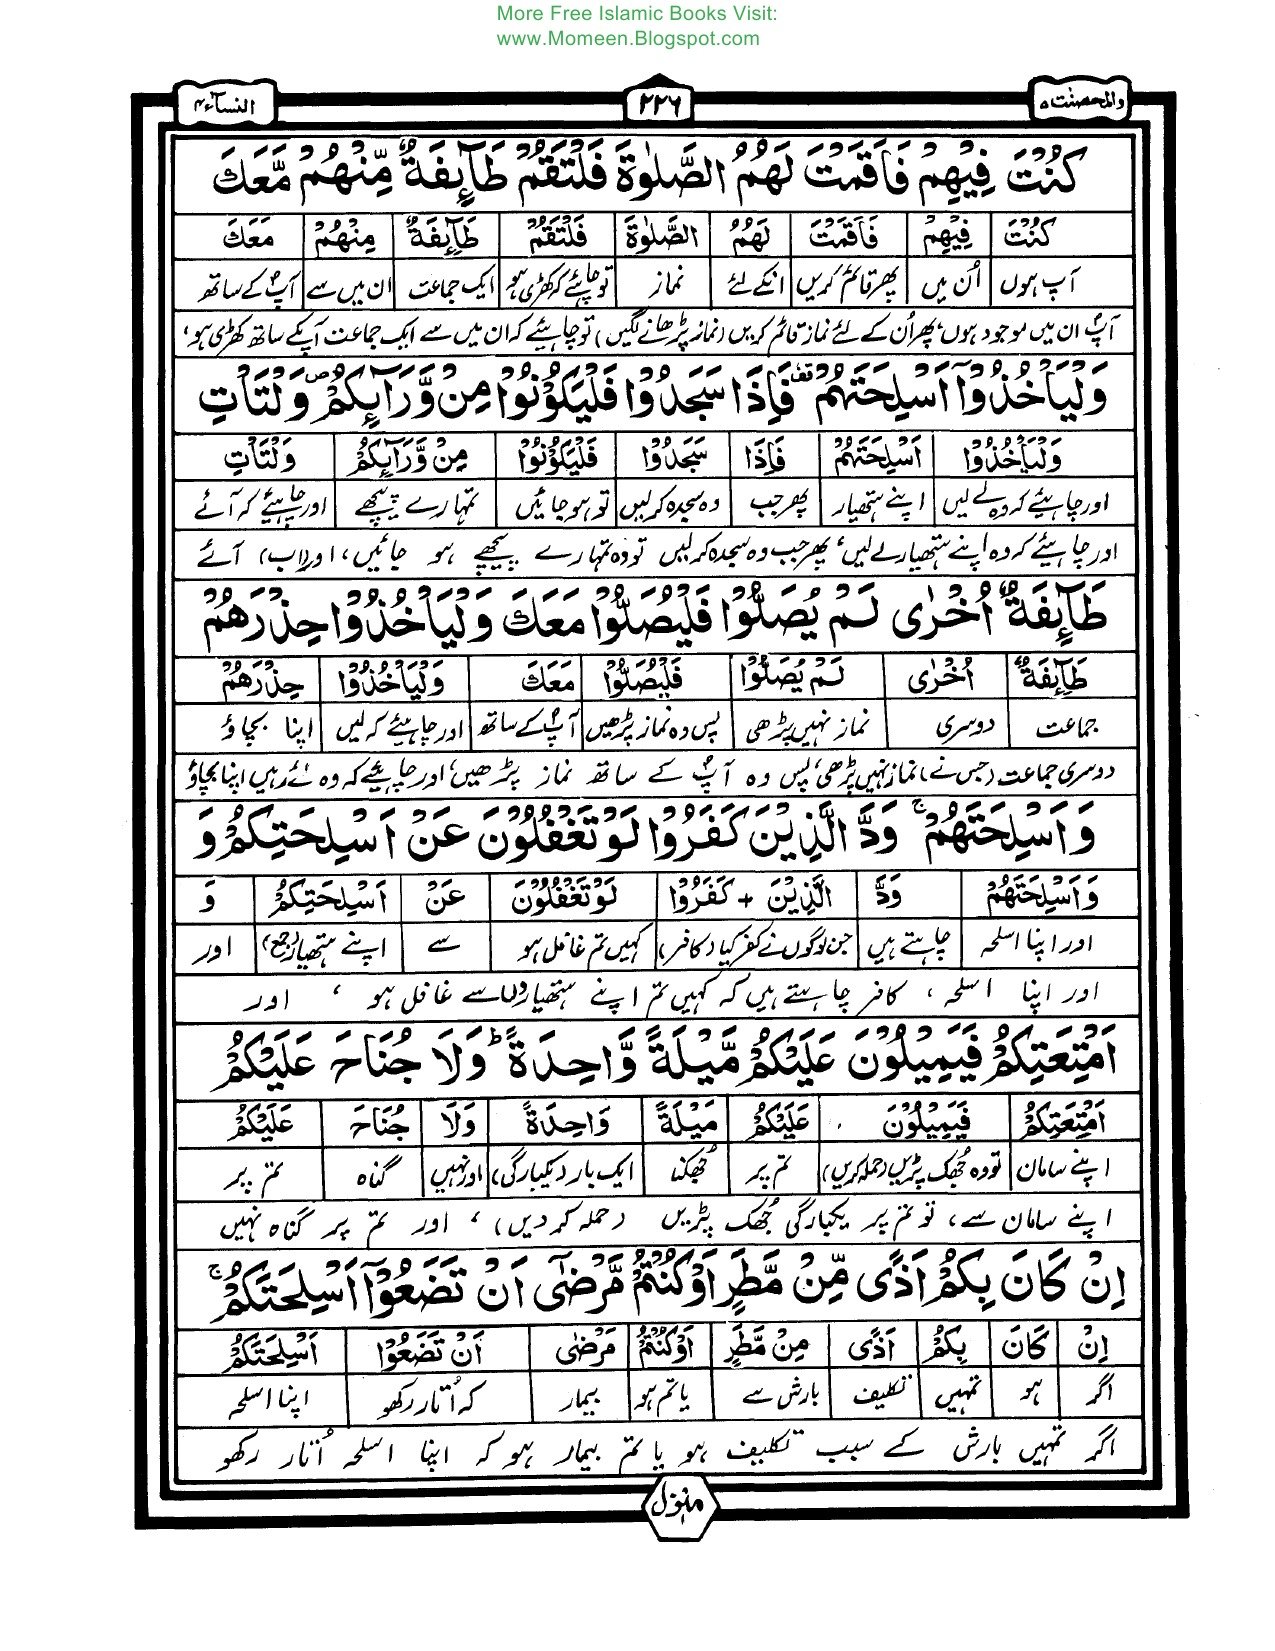 More Free Islamic Books Visit:
www.Momeen.Blogspot.com
والمحصنٰت ۵ ۲۲۶ النسآء ۴
كُنْتَ فِيْهِمْ فَاَقَمْتَ لَهُمُ الصَّلٰوةَ فَلْتَقُمْ طَآئِفَةٌ مِّنْهُمْ مَّعَكَ
كُنْتَ فِيْهِمْ فَاَقَمْتَ لَهُمُ الصَّلٰوةَ فَلْتَقُمْ طَآئِفَةٌ مِنْهُمْ مَعَكَ
آپ ہوں اُن میں پھر قائم کریں انکے لئے نماز تو چاہئے کہ کھڑی ہو ایک جماعت ان میں سے آپؐ کے ساتھ
آپؐ ان میں موجود ہوں، پھر اُن کے لئے نماز قائم کریں (نماز پڑھانے لگیں) تو چاہیئے کہ ان میں سے ایک جماعت آپکے ساتھ کھڑی ہو،
وَلْيَاْخُذُوْٓا اَسْلِحَتَهُمْ ۫ فَاِذَا سَجَدُوْا فَلْيَكُوْنُوْا مِنْ وَّرَآئِكُمْ ۪ وَلْتَاْتِ
وَلْيَاْخُذُوْا اَسْلِحَتَهُمْ فَاِذَا سَجَدُوْا فَلْيَكُوْنُوْا مِنْ وَّرَآئِكُمْ وَلْتَاْتِ
اور چاہیئے کہ وہ لے لیں اپنے ہتھیار پھر جب وہ سجدہ کر لیں تو ہو جائیں تمہارے پیچھے اور چاہیئے کہ آئے
اور چاہیئے کہ وہ اپنے ہتھیار لے لیں، پھر جب وہ سجدہ کر لیں تو وہ تمہارے پیچھے ہو جائیں، اور (اب) آئے
طَآئِفَةٌ اُخْرٰى لَمْ يُصَلُّوْا فَلْيُصَلُّوْا مَعَكَ وَلْيَاْخُذُوْا حِذْرَهُمْ
طَآئِفَةٌ اُخْرٰى لَمْ يُصَلُّوْا فَلْيُصَلُّوْا مَعَكَ وَلْيَاْخُذُوْا حِذْرَهُمْ
جماعت دوسری نماز نہیں پڑھی پس وہ نماز پڑھیں آپؐ کے ساتھ اور چاہیئے کہ لیں اپنا بچاؤ
دوسری جماعت (جس نے) نماز نہیں پڑھی، پس وہ آپؐ کے ساتھ نماز پڑھیں، اور چاہیئے کہ وہ لئے رہیں اپنا بچاؤ
وَاَسْلِحَتَهُمْ ۚ وَدَّ الَّذِيْنَ كَفَرُوْا لَوْ تَغْفُلُوْنَ عَنْ اَسْلِحَتِكُمْ وَ
وَاَسْلِحَتَهُمْ وَدَّ الَّذِيْنَ + كَفَرُوْا لَوْ تَغْفُلُوْنَ عَنْ اَسْلِحَتِكُمْ وَ
اور اپنا اسلحہ چاہتے ہیں جن لوگوں نے کفر کیا (کافر) کہیں تم غافل ہو سے اپنے ہتھیار (جمع) اور
اور اپنا اسلحہ، کافر چاہتے ہیں کہ کہیں تم اپنے ہتھیاروں سے غافل ہو، اور
اَمْتِعَتِكُمْ فَيَمِيْلُوْنَ عَلَيْكُمْ مَّيْلَةً وَّاحِدَةً ۭ وَلَا جُنَاحَ عَلَيْكُمْ
اَمْتِعَتِكُمْ فَيَمِيْلُوْنَ عَلَيْكُمْ مَيْلَةً وَاحِدَةً وَلَا جُنَاحَ عَلَيْكُمْ
اپنے سامان تو وہ جُھک پڑیں (حملہ کریں) تم پر جُھکنا ایک بار (یکبارگی) اور نہیں گناہ تم پر
اپنے سامان سے، تو تم پر یکبارگی جُھک پڑیں (حملہ کر دیں)، اور تم پر گناہ نہیں
اِنْ كَانَ بِكُمْ اَذًى مِّنْ مَّطَرٍ اَوْ كُنْتُمْ مَّرْضٰٓى اَنْ تَضَعُوْٓا اَسْلِحَتَكُمْ ۚ
اِنْ كَانَ بِكُمْ اَذًى مِنْ مَّطَرٍ اَوْ كُنْتُمْ مَرْضٰى اَنْ تَضَعُوْا اَسْلِحَتَكُمْ
اگر ہو تمہیں تکلیف بارش سے یا تم ہو بیمار کہ اُتار رکھو اپنا اسلحہ
اگر تمہیں بارش کے سبب تکلیف ہو یا تم بیمار ہو کہ اپنا اسلحہ اُتار رکھو
منزل ۱